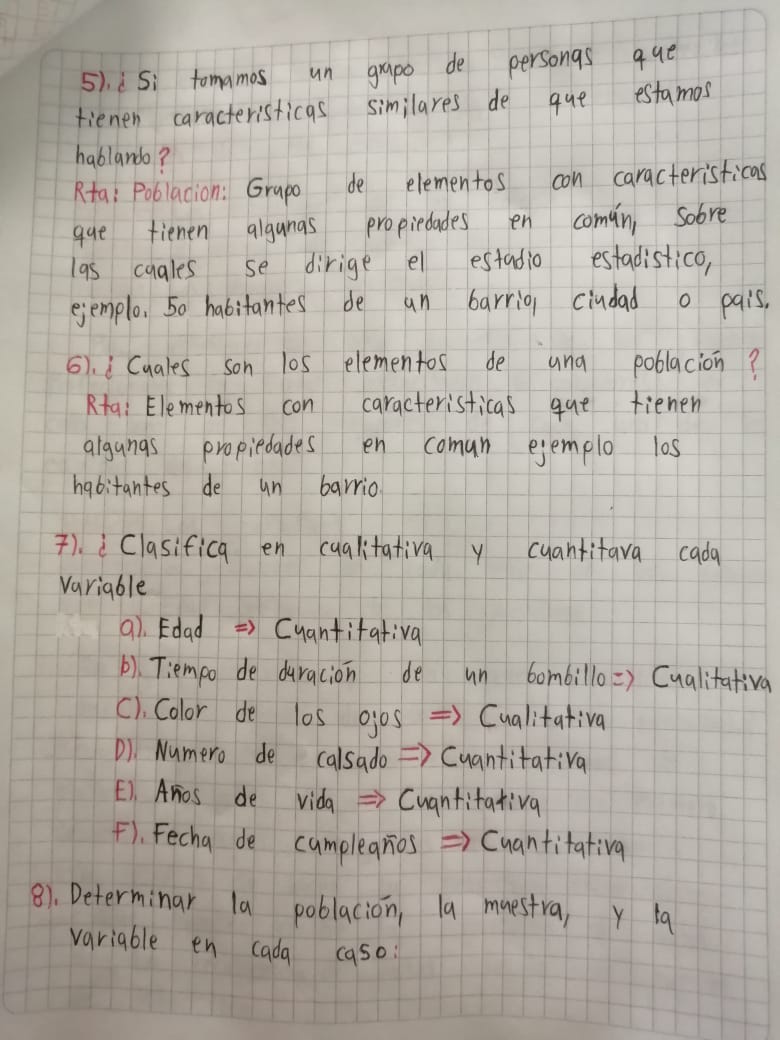 5). ¿Si tomamos un grupo de personas que
tienen caracteristicas similares de que estamos
hablando?
Rta: Poblacion: Grupo de elementos con caracteristicas
que tienen algunas propiedades en común, sobre
las cuales se dirige el estadio estadistico,
ejemplo. 50 habitantes de un barrio, ciudad o pais.
6). ¿Cuales son los elementos de una poblacion?
Rta: Elementos con caracteristicas que tienen
algunas propiedades en comun ejemplo los
habitantes de un barrio.
7). ¿Clasifica en cualitativa y cuantitava cada
variable
a). Edad => Cuantitativa
b). Tiempo de duración de un bombillo => Cualitativa
C). Color de los ojos => Cualitativa
D). Numero de calsado => Cuantitativa
E). Años de vida => Cuantitativa
F). Fecha de cumpleaños => Cuantitativa
8). Determinar la población, la muestra, y la
variable en cada caso: